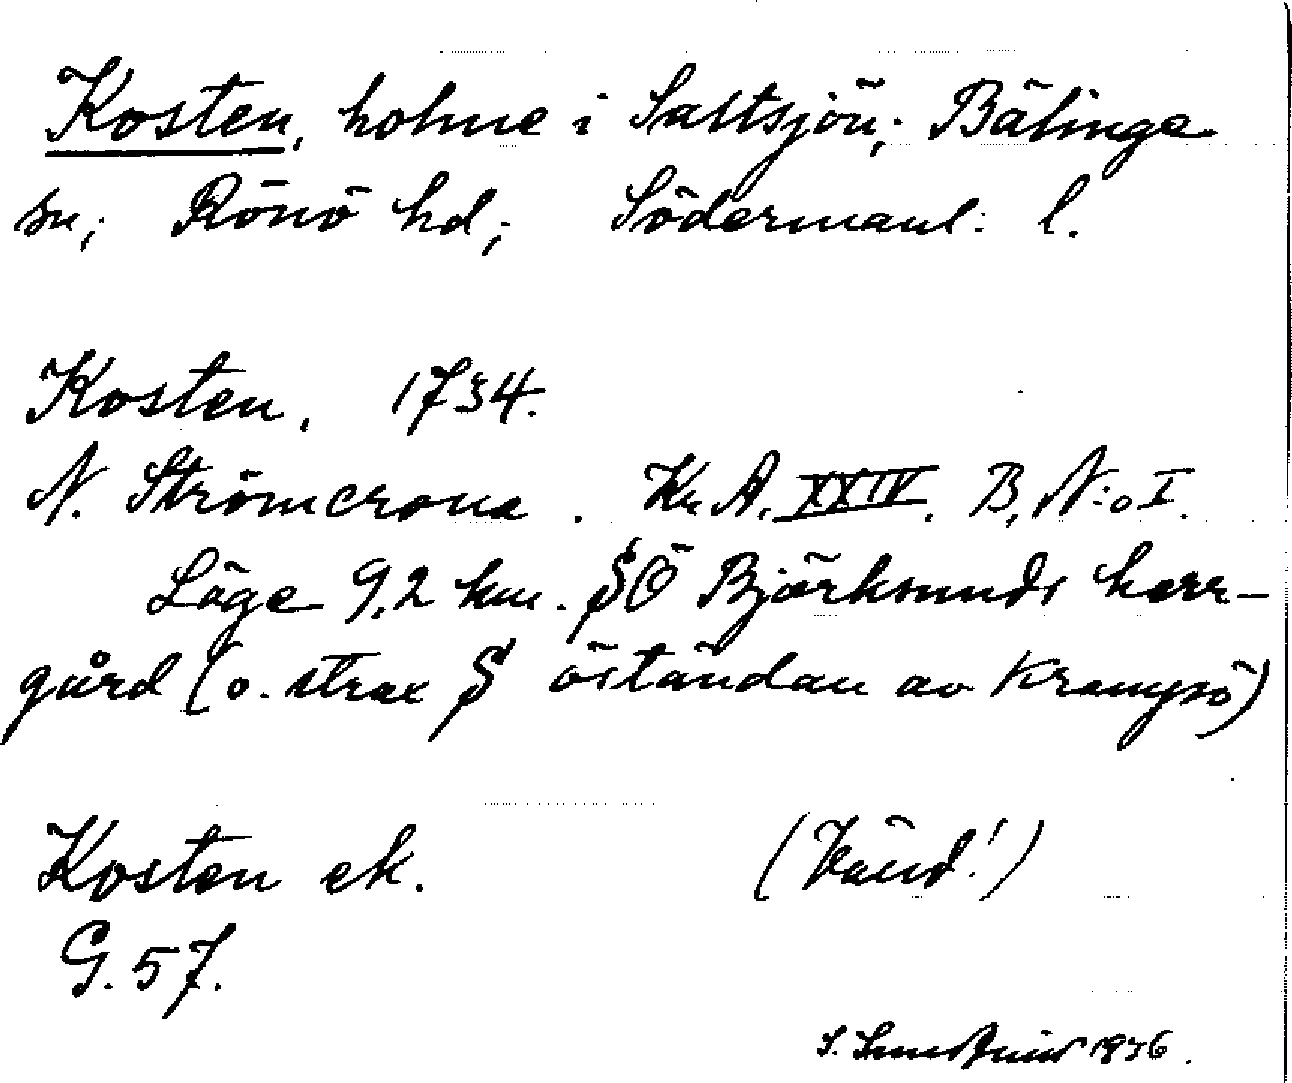 Kosten, holme i Saltsjön; Bälinge
sn; Rönö hd; Södermanl. l.
Kosten, 1734.
N. Strömcrona. Kr. A. XXIV. B. N:o I.
Läge 9,2 km. SÖ Björksunds herr-
gård (o. strax S öständan av Krampö)
Kosten ek. (Vänd!)
G. 57.
S. 1936.